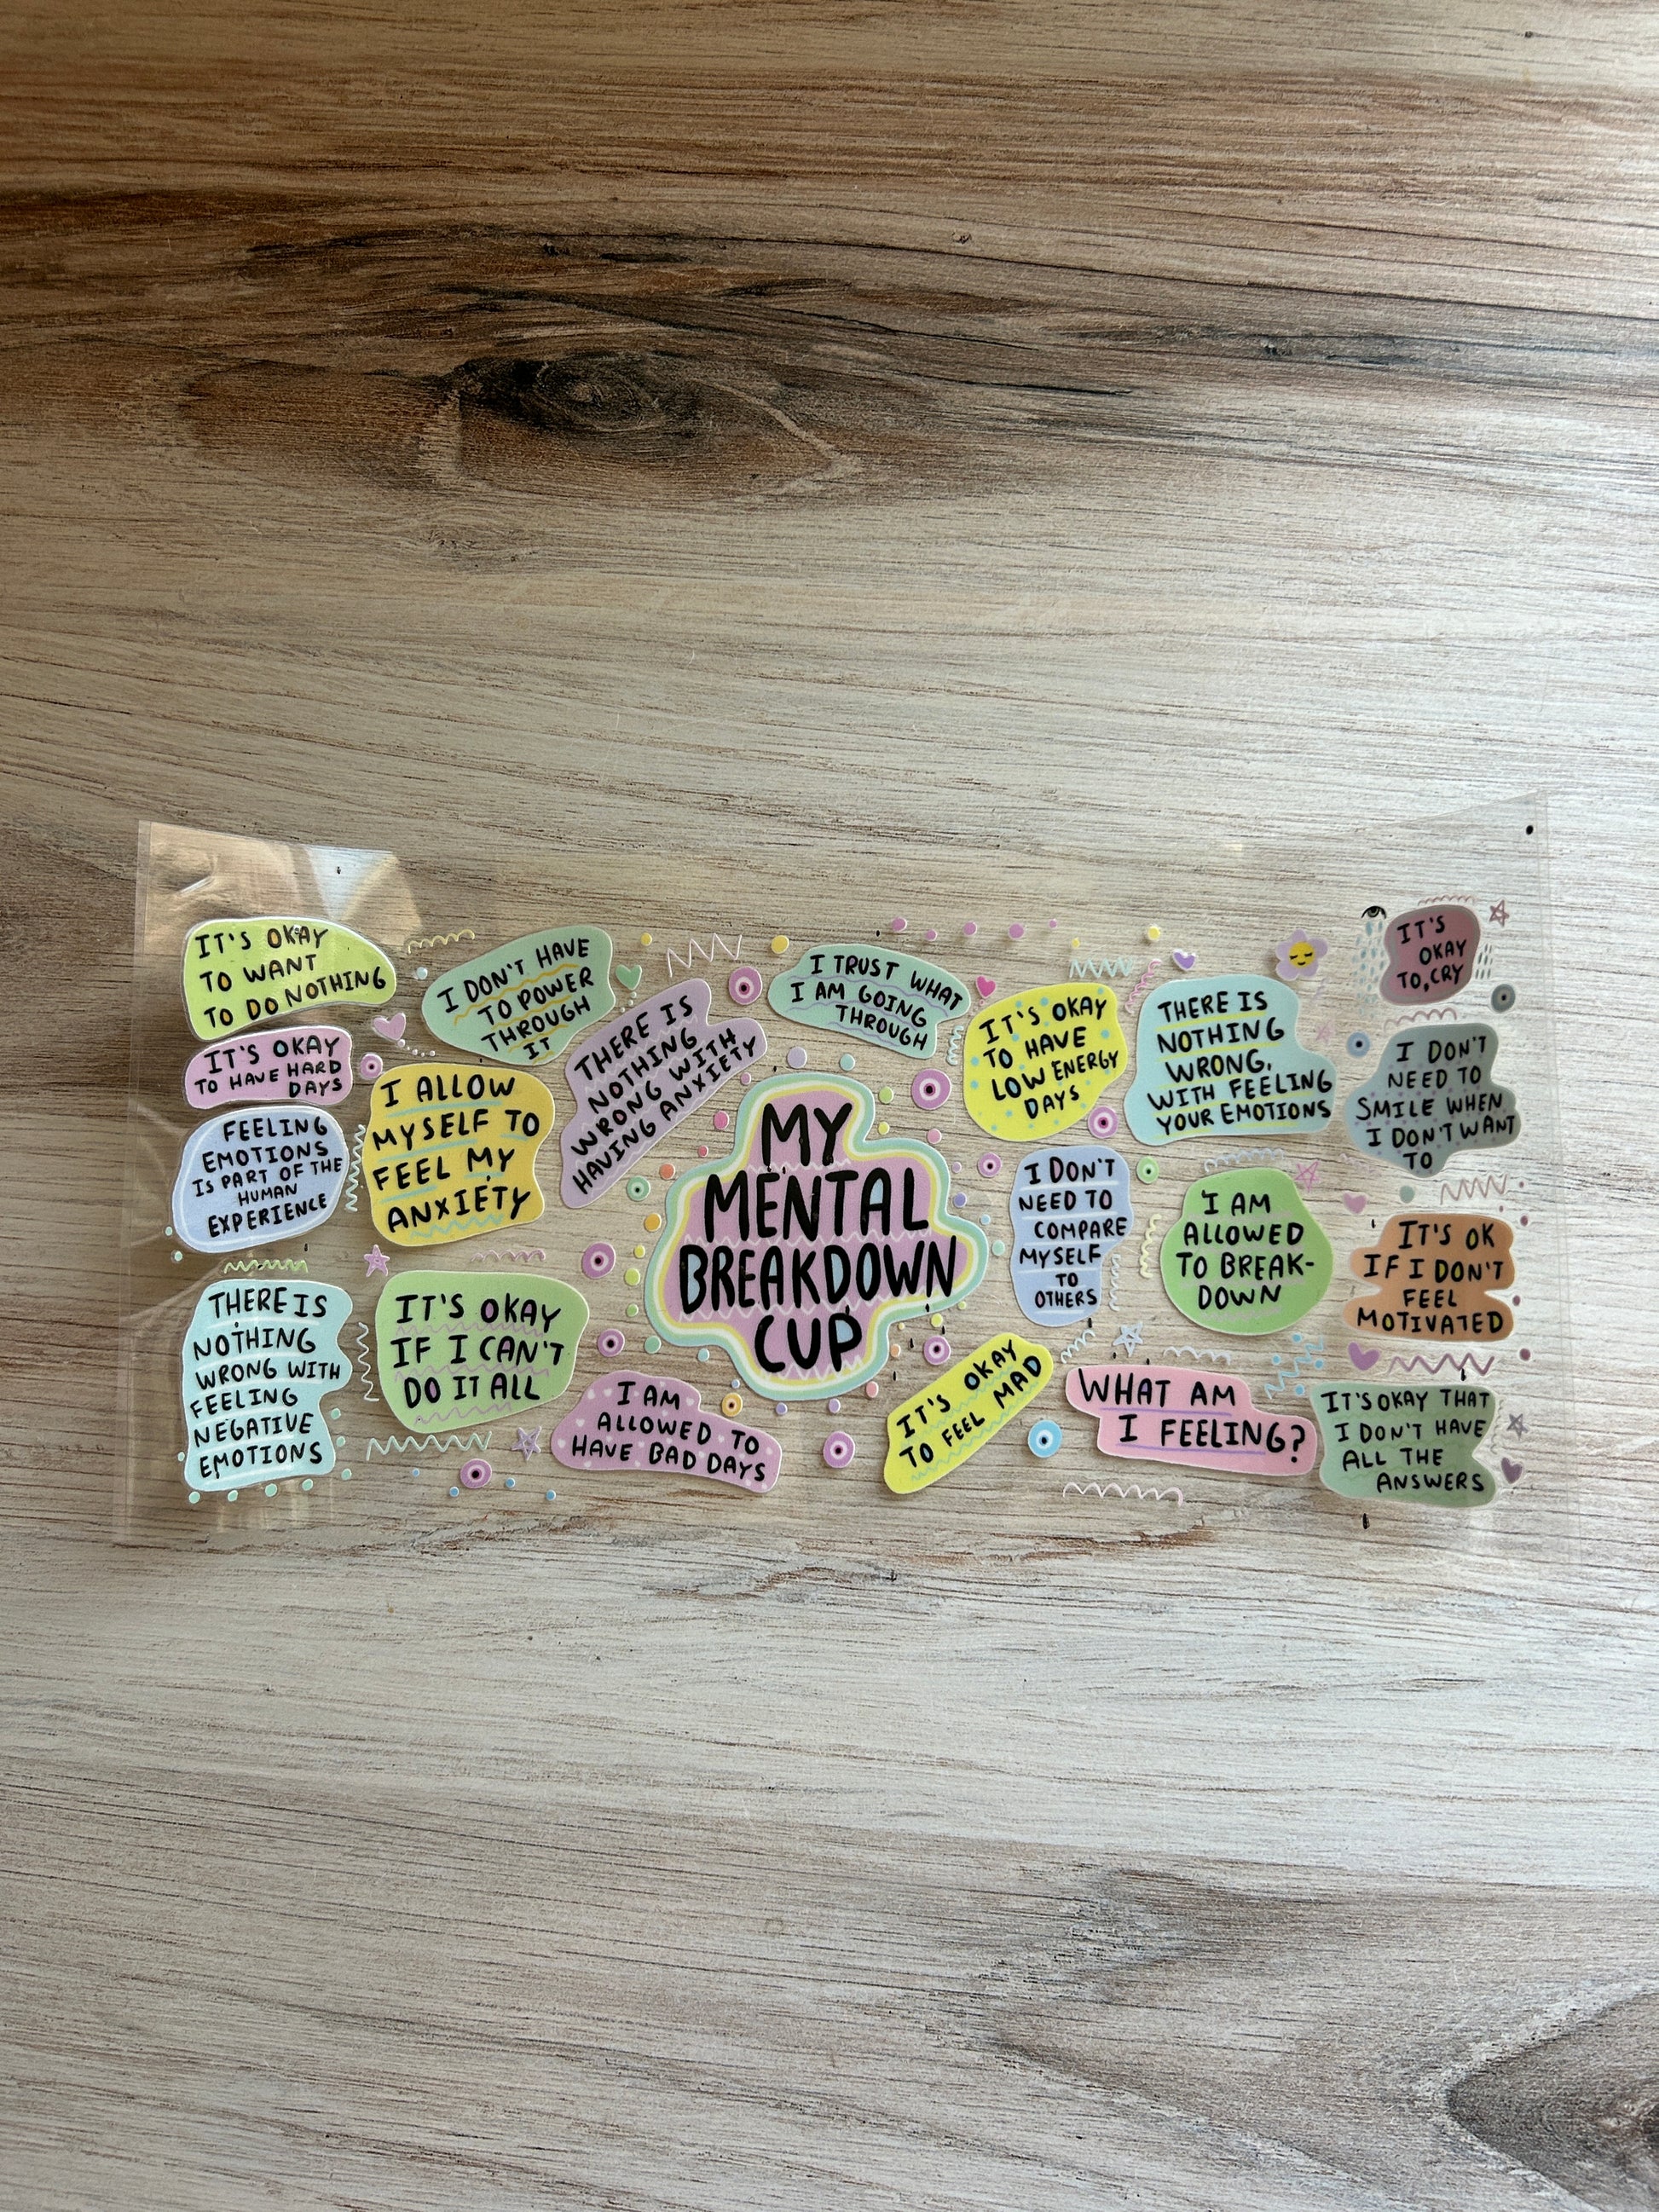 IT'S OKAY
TO WANT
TO DO NOTHING
IT'S OKAY
TO HAVE HARD
DAYS
FEELING
EMOTIONS
IS PART OF THE
HUMAN
EXPERIENCE
THERE IS
NOTHING
WRONG WITH
FEELING
NEGATIVE
EMOTIONS
I DON'T HAVE
TO POWER
THROUGH
IT
I ALLOW
MYSELF TO
FEEL MY
ANXIETY
IT'S OKAY
IF I CAN'T
DO IT ALL
THERE IS
NOTHING
WRONG WITH
HAVING ANXIETY
I AM
ALLOWED TO
HAVE BAD DAYS
MY
MENTAL
BREAKDOWN
CUP
I TRUST WHAT
I AM GOING
THROUGH
IT'S OKAY
TO HAVE
LOW ENERGY
DAYS
I DON'T
NEED TO
COMPARE
MYSELF
TO
OTHERS
IT'S OKAY
TO FEEL MAD
THERE IS
NOTHING
WRONG,
WITH FEELING
YOUR EMOTIONS
I AM
ALLOWED
TO BREAK-
DOWN
WHAT AM
I FEELING?
IT'S
OKAY
TO CRY
I DON'T
NEED TO
SMILE WHEN
I DON'T WANT
TO
IT'S OK
IF I DON'T
FEEL
MOTIVATED
IT'S OKAY THAT
I DON'T HAVE
ALL THE
ANSWERS